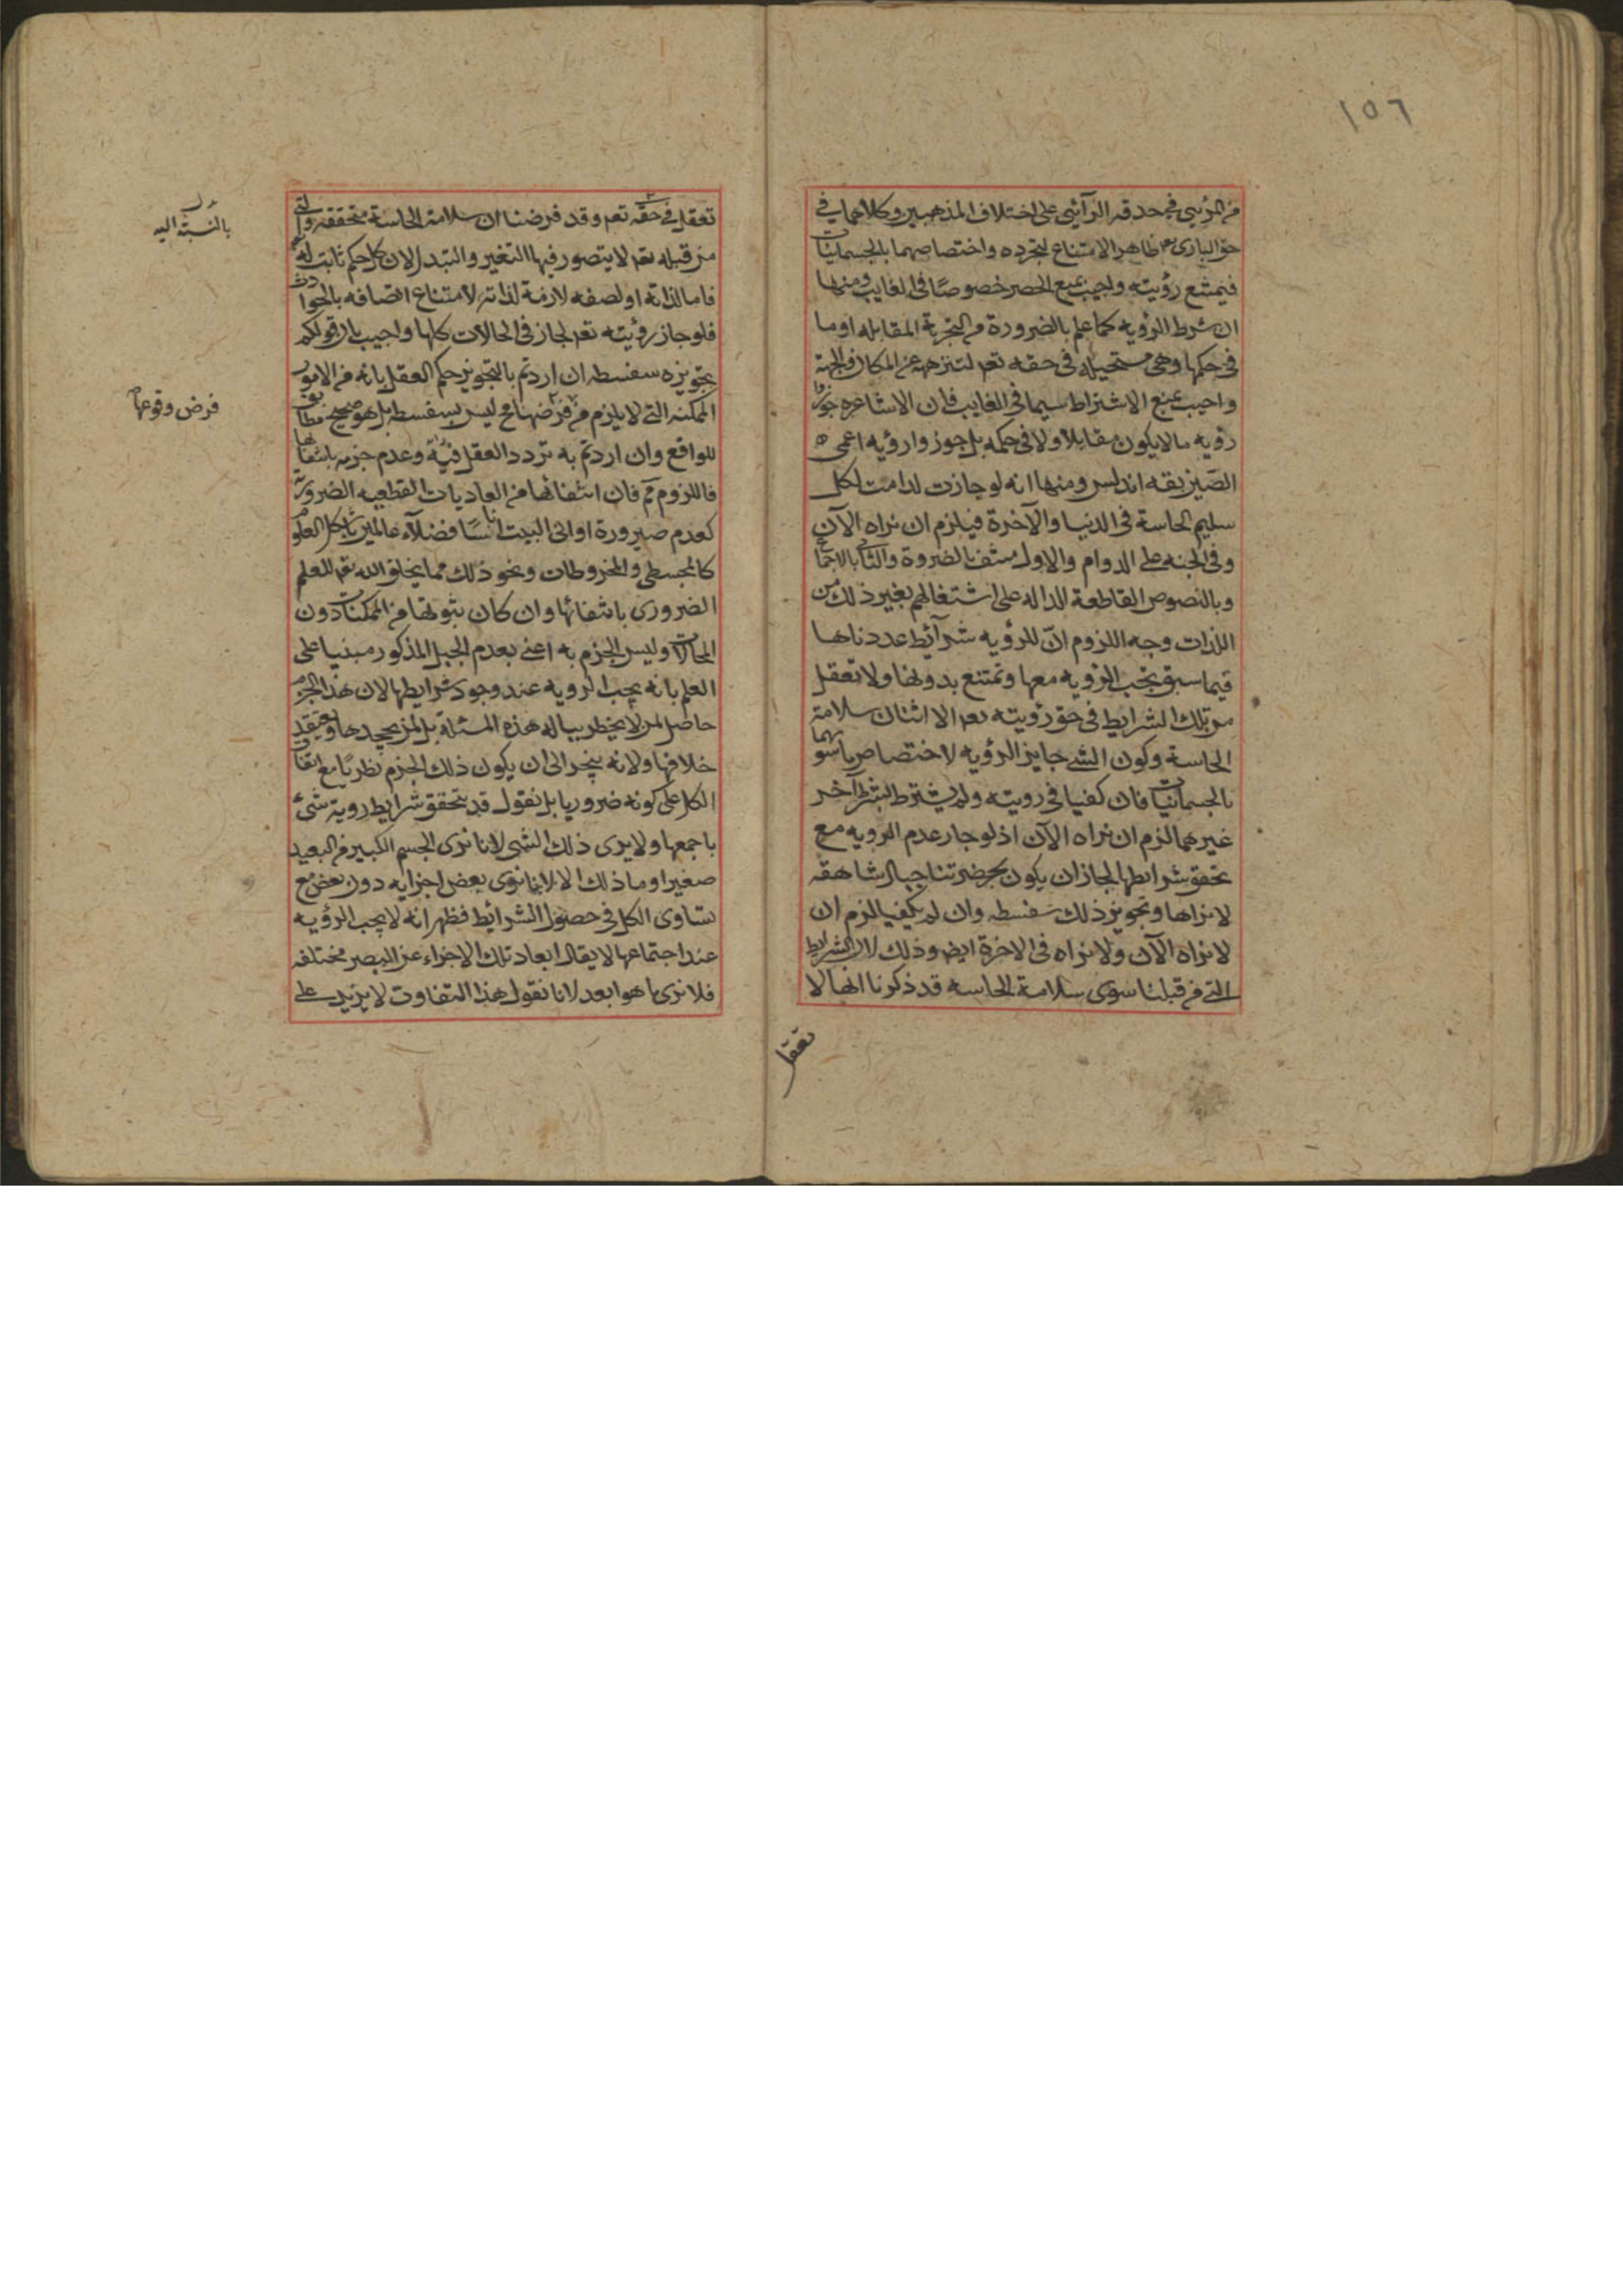 ١٥٦
من المرئي في حدقه الرآئي على اختلاف المذهبين وكلاهما في
حق الباري تع ظاهر الامتناع لتجرده واختصاصهما بالجسمانيات
فيمتنع رؤيته واجيب بمنع الحصر خصوصا في الغايب ومنها
ان شرط الرؤيه كما علم بالضرورة من التجربة المقابله او ما
في حكمها وهي مستحيله في حقه تعم لتنزهه عن المكان والجهة
واجيب بمنع الاشتراط سيما في الغايب فان الاشاعره جوزوا
رؤيه ما لا يكون مقابلا ولا في حكمه بل جوزوا رؤيه اعمى
الصين بقه اندلس ومنها انه لو جازت لدامت لكل
سليم الحاسة في الدنيا والآخرة فيلزم ان نراه الآن
وفي الجنه على الدوام والاول منتف بالضروة والثاني بالاجماع
وبالنصوص القاطعة الداله على اشتغالهم بغير ذلك من
اللذات وجه اللزوم انّ للرؤيه شرآئط عددناها
فيما سبق تجب الرؤيه معها وتمتنع بدونها ولا تعقل
من تلك الشرايط في حق رؤيته تعم الا اثنان سلامة
الحاسة وكون الشئ جايز الرؤيه لاختصاص ما سواهما
بالجسمانيات فان كفيا في رويته ولم يشترط بشرط آخر
غيرهما لزم ان نراه الآن اذ لو جاز عدم الرويه مع
تحقق شرايطها لجاز ان يكون بحضرتنا جبال شاهقه
لا نراها وتجويز ذلك سفسطه وان لم يكفيا لزم ان
لا نراه الآن ولا نراه في الاخرة ايض وذلك لان الشرايط
التي من قبلنا سوى سلامة الحاسه قد ذكرنا انها لا
تعقل
تعقل في حقه تعم وقد فرضنا ان سلامة الحاسة متحققه والتي
من قبله تعم لا يتصور فيها التغير والتبدل لان كل حكم ثابت له تع
فاما لذاته او لصفه لازمة لذاته لامتناع اتصافه بالحوادث
فلو جاز رؤيته تعم لجاز في الحالات كلها واجيب بان قولكم
تجويزه سفسطه ان اردتم بالتجويز حكم العقل بانه من الامور
الممكنه التي لا يلزم من فرضها مح وليس بسفسطه بل هو صحيح مطابق
للواقع وان اردتم به تردد العقل فيه وعدم جزمه بانتفائها
فاللزوم مم فان انتفائها من العاديات القطعيه الضروريه
كعدم صيرورة اواني البيت اناسا فضلآء عالمين بكل العلوم
كالمجسطي والمخروطات ونحو ذلك مما يخلق الله تعم العلم
الضروري بانتفائها وان كان ثبوتها من الممكنات دون
المحالات وليس الجزم به اعني بعدم الجبل المذكور مبنيا على
العلم بانه يجب الرويه عند وجود شرايطها لان هذا الجزم
حاصل لمن لا يخطر بباله هذه المسئلة بل لمن يجحدها ويعتقد
خلافها ولانه ينجر الى ان يكون ذلك الجزم نظريا مع اتفاق
الكل على كونه ضروريا بل نقول قد يتحقق شرايط روية شئ
باجمعها ولا يرى ذلك الشئ لانا نرى الجسم الكبير من البعيد
صغيرا وما ذلك الا لانا نرى بعض اجزايه دون بعض مع
تساوى الكل في حصول الشرائط فظهر انه لا يجب الرؤيه
عند اجتماعها لا يقال ابعاد تلك الاجزاء عن البصر مختلفه
فلا نرى ما هو ابعد لانا نقول هذا التفاوت لا يزيد على
بالنسبة اليه
فرض وقوعها